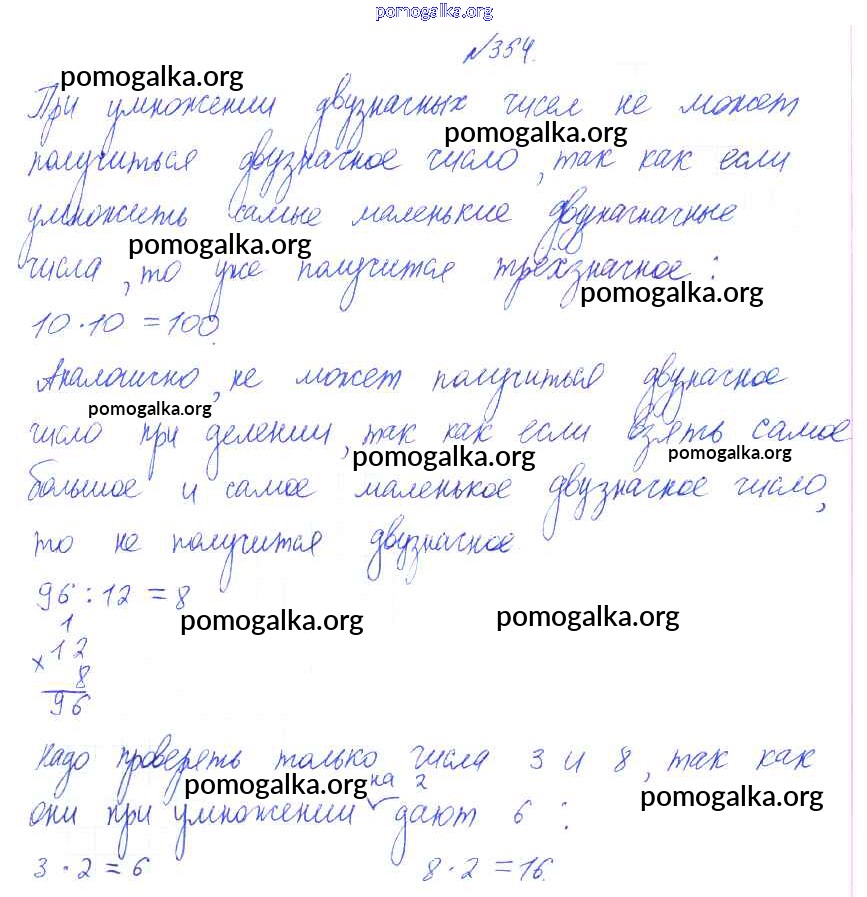 pomogalka.org
№354.
pomogalka.org
При умножении двузначных чисел не может
pomogalka.org
получиться двузначное число, так как если
умножить самые маленькие двузначные
pomogalka.org
числа, то уже получится трёхзначное:
pomogalka.org
10·10=100.
Аналогично, не может получиться двузначное
pomogalka.org
число при делении, так как если взять самое
pomogalka.org pomogalka.org
большое и самое маленькое двузначное число,
то не получится двузначное
96:12=8
pomogalka.org pomogalka.org
1
×12
8
96
Надо проверять только числа 3 и 8, так как
pomogalka.org на 2 pomogalka.org
они при умножении дают 6:
3·2=6 8·2=16.